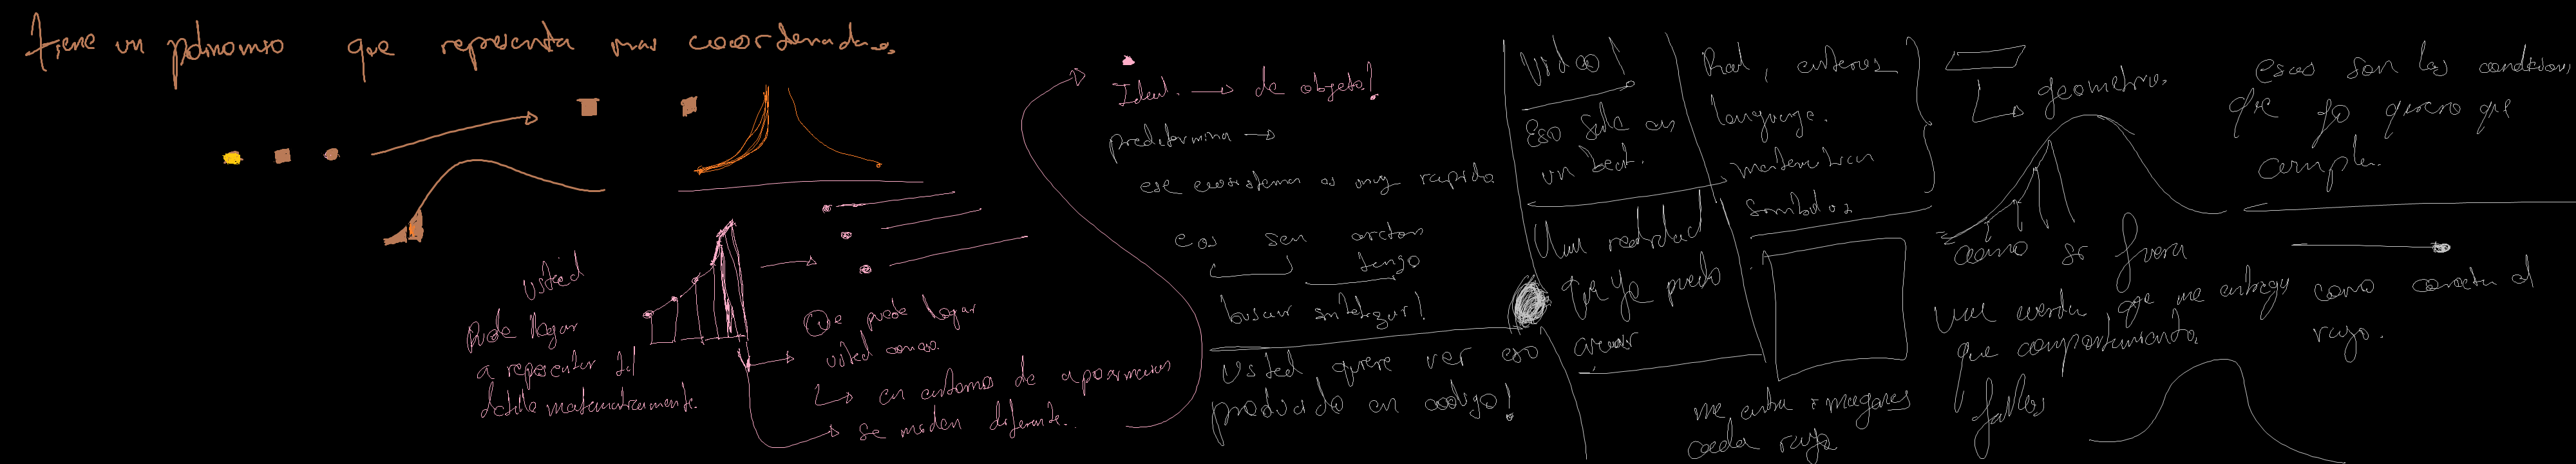 tiene un polinomio que representa mas coordenadas.
usted
puede llegar
a representar tal
detalle matematicamente.
Que puede lograr
usted con eso.
en entorno de aproximacion
se miden diferente.
Ideal. → de objeto!
predetermina →
ese ecosistema es muy rapido
cos sen arctan
tengo
buscar sintetizar!
Usted quiere ver eso
producido en codigo!
Video!
Eso sale en
un text.
Una realidad
que ya puedo
crear
Real, enteros
language.
matematicas
simbolos
me entra imagenes
cada rayo
geometria.
como si fuera
una cuerda que me entrega
que comportamiento
fallas
esas son las condicion
que yo quiero que
cumpla.
como conecta el
rayo.